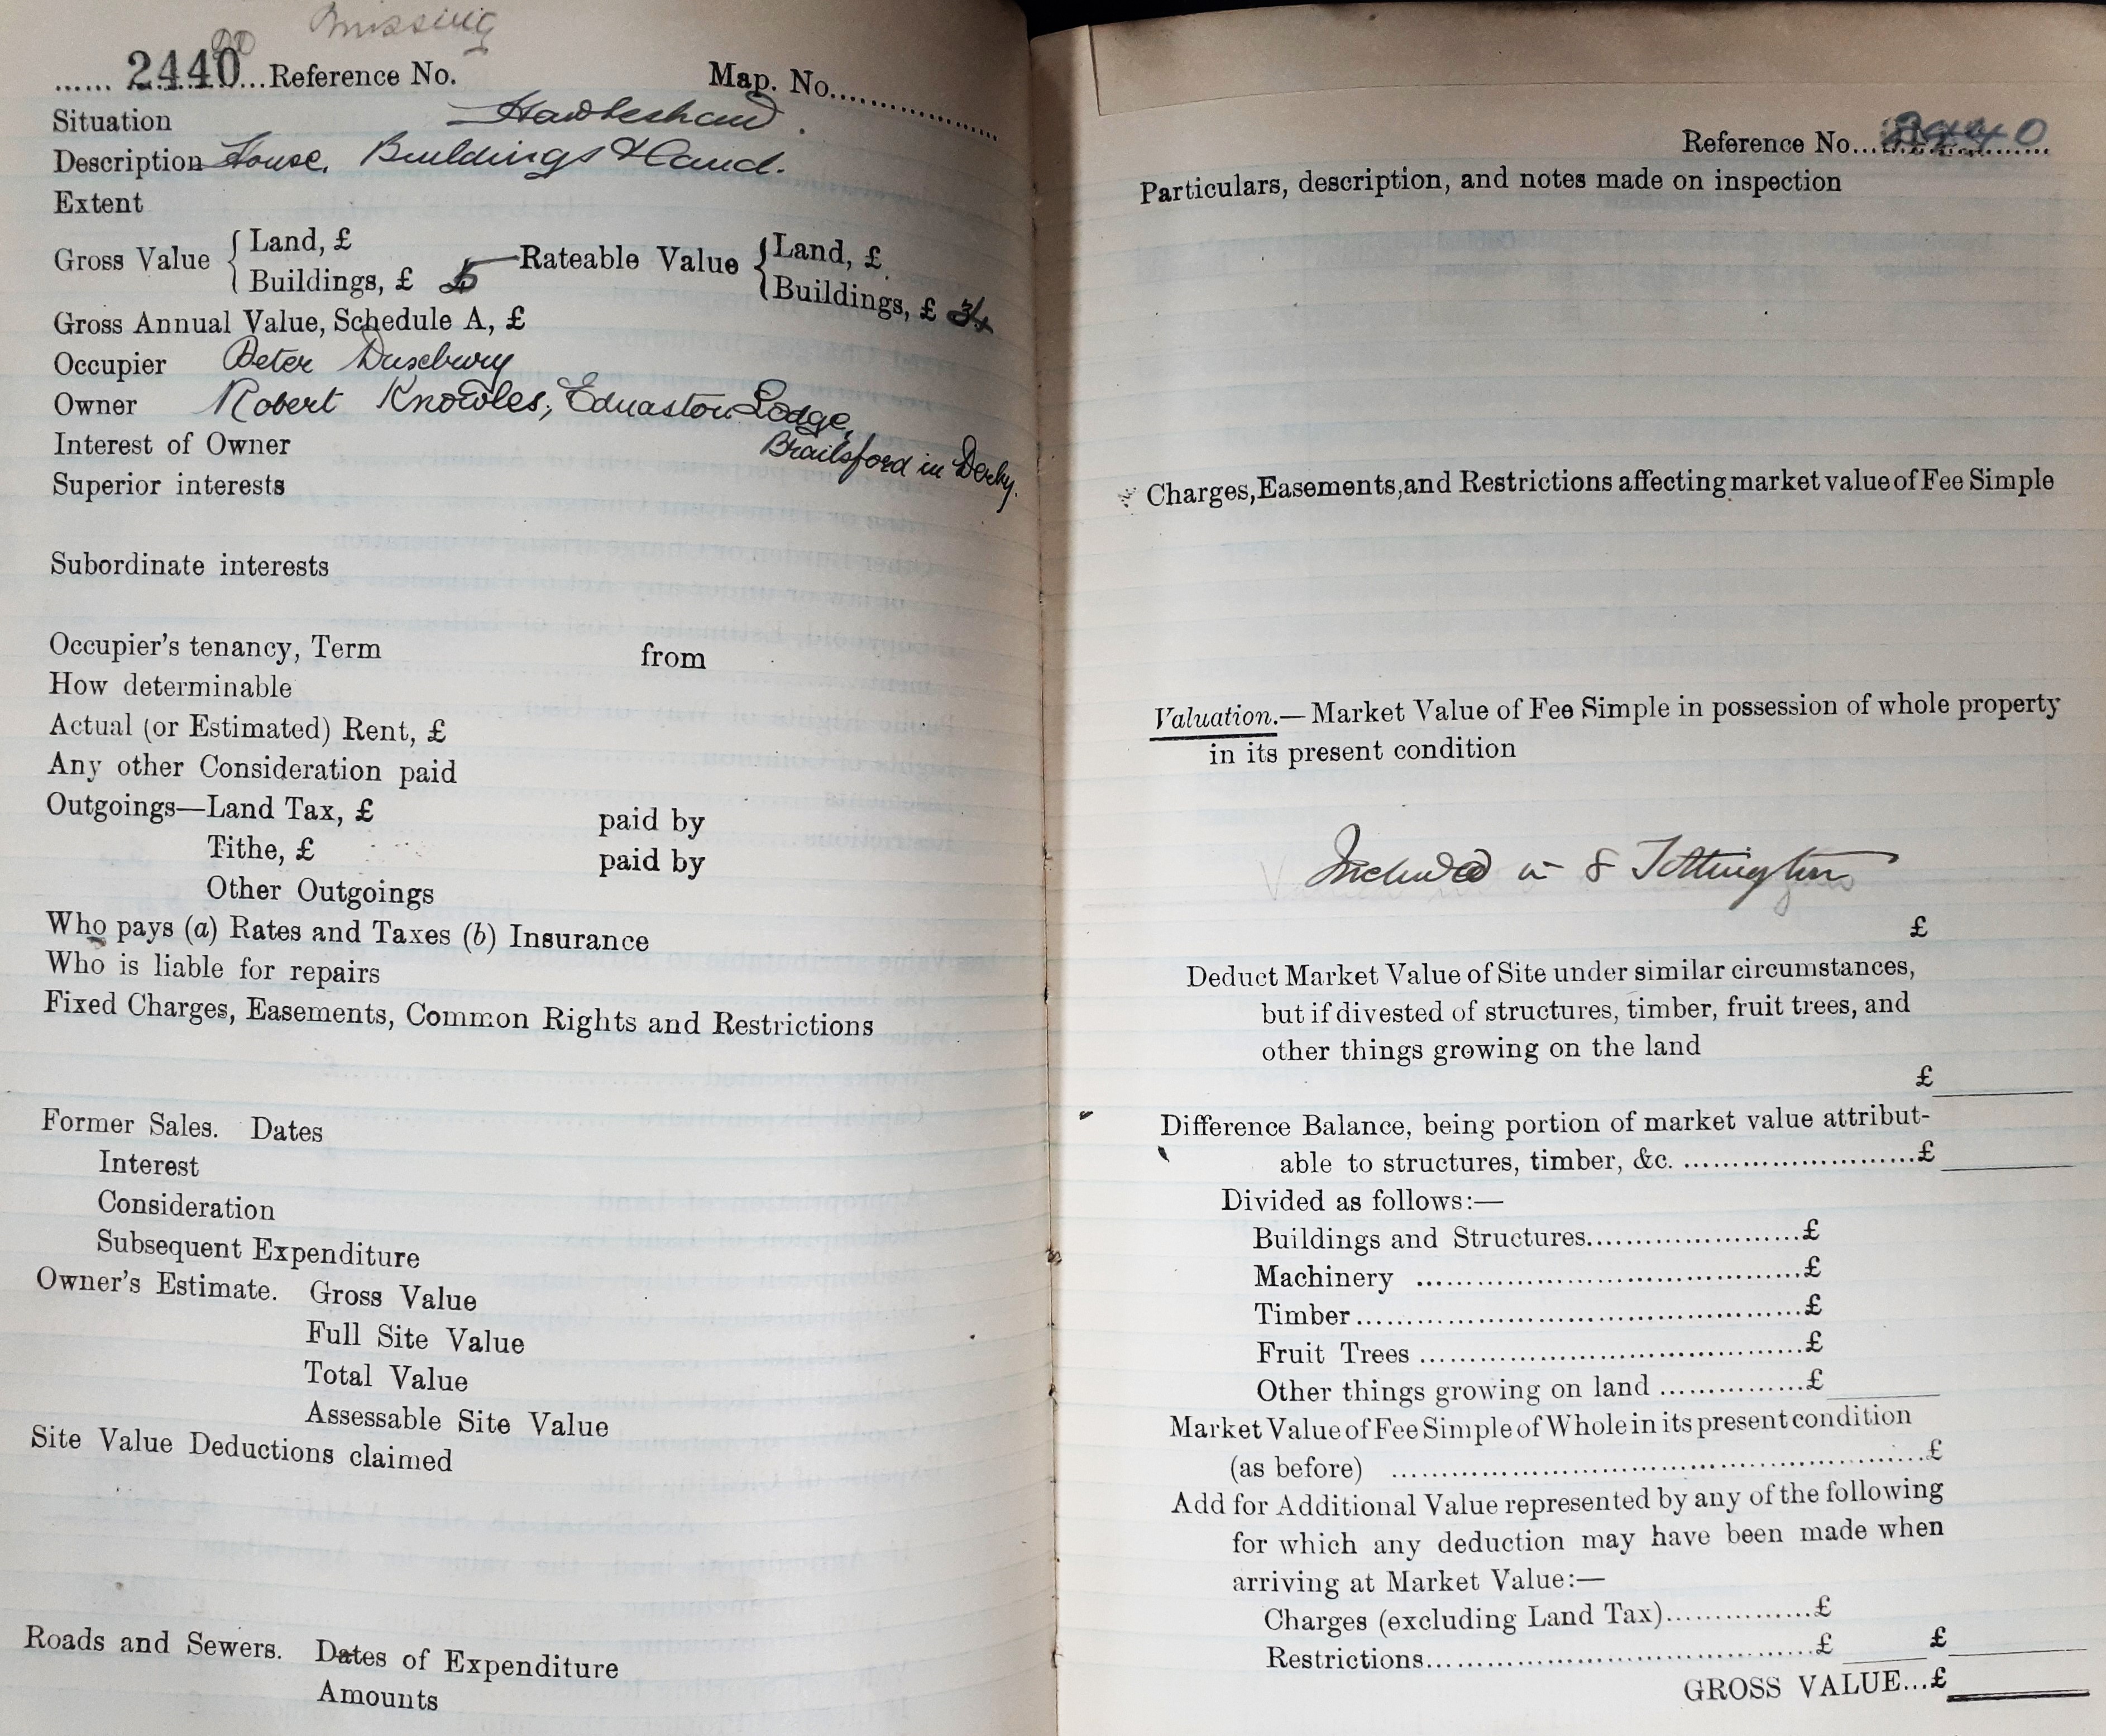 Missing
...... 2440 ...Reference No. Map. No...............
Situation Hawkshaw.
Description House, Buildings & Land.
Extent
Gross Value { Land, £ Rateable Value { Land, £
Buildings, £ Buildings, £
Gross Annual Value, Schedule A, £
Occupier Peter Duxbury
Owner Robert Knowles, Ednaston Lodge,
Brailsford in Derby.
Interest of Owner
Superior interests
Subordinate interests
Occupier's tenancy, Term from
How determinable
Actual (or Estimated) Rent, £
Any other Consideration paid
Outgoings—Land Tax, £ paid by
Tithe, £ paid by
Other Outgoings
Who pays (a) Rates and Taxes (b) Insurance
Who is liable for repairs
Fixed Charges, Easements, Common Rights and Restrictions
Former Sales. Dates
Interest
Consideration
Subsequent Expenditure
Owner's Estimate. Gross Value
Full Site Value
Total Value
Assessable Site Value
Site Value Deductions claimed
Roads and Sewers. Dates of Expenditure
Amounts
Reference No... 2440
Particulars, description, and notes made on inspection
Charges, Easements, and Restrictions affecting market value of Fee Simple
Valuation.—Market Value of Fee Simple in possession of whole property
in its present condition
Included in 8 Tottington
£
Deduct Market Value of Site under similar circumstances,
but if divested of structures, timber, fruit trees, and
other things growing on the land
£
Difference Balance, being portion of market value attribut-
able to structures, timber, &c. ........................£
Divided as follows:—
Buildings and Structures......................£
Machinery .......................................£
Timber.............................................£
Fruit Trees .......................................£
Other things growing on land ...............£
Market Value of Fee Simple of Whole in its present condition
(as before) ......................................................£
Add for Additional Value represented by any of the following
for which any deduction may have been made when
arriving at Market Value:—
Charges (excluding Land Tax)...............£
Restrictions.........................................£ £
GROSS VALUE...£